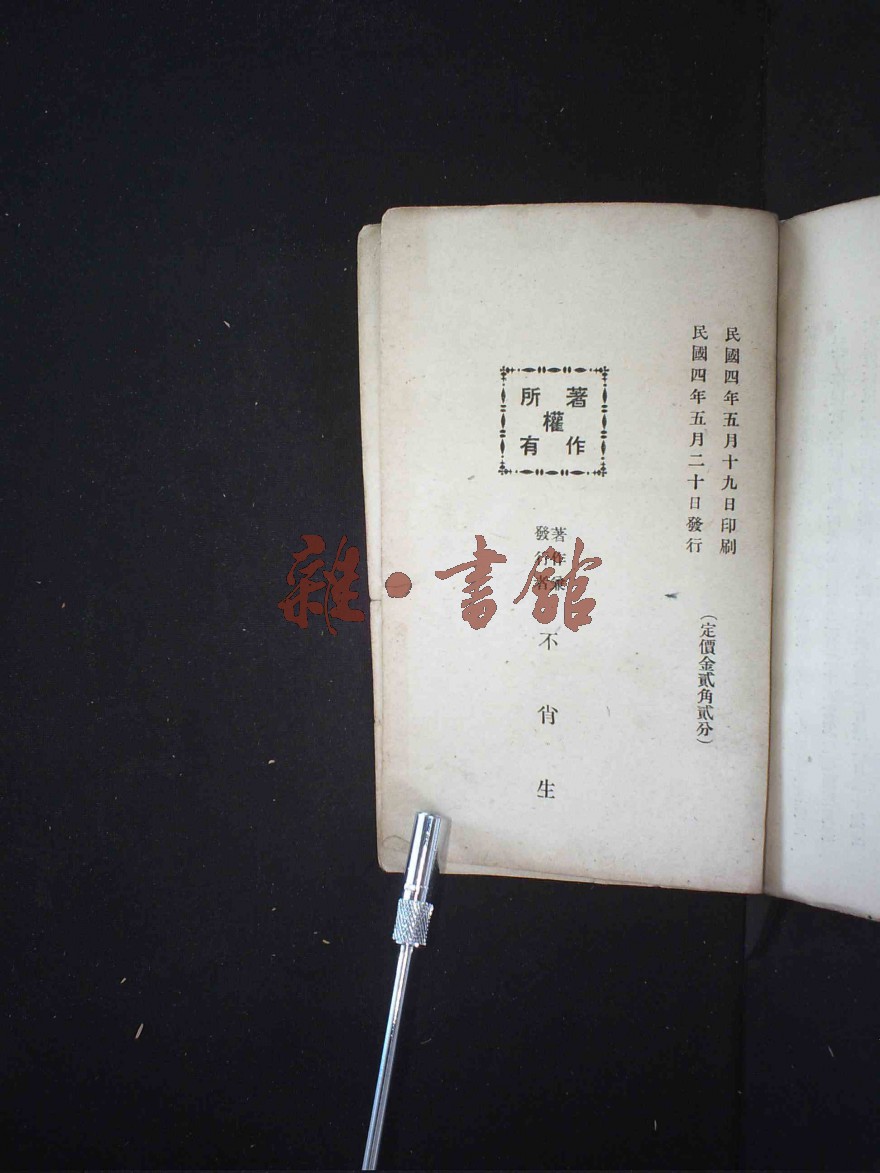 民國四年五月十九日印刷
民國四年五月二十日發行
（定價金貳角貳分）
著作
權
所有
著作兼
發行者
不肖生
雜·書館